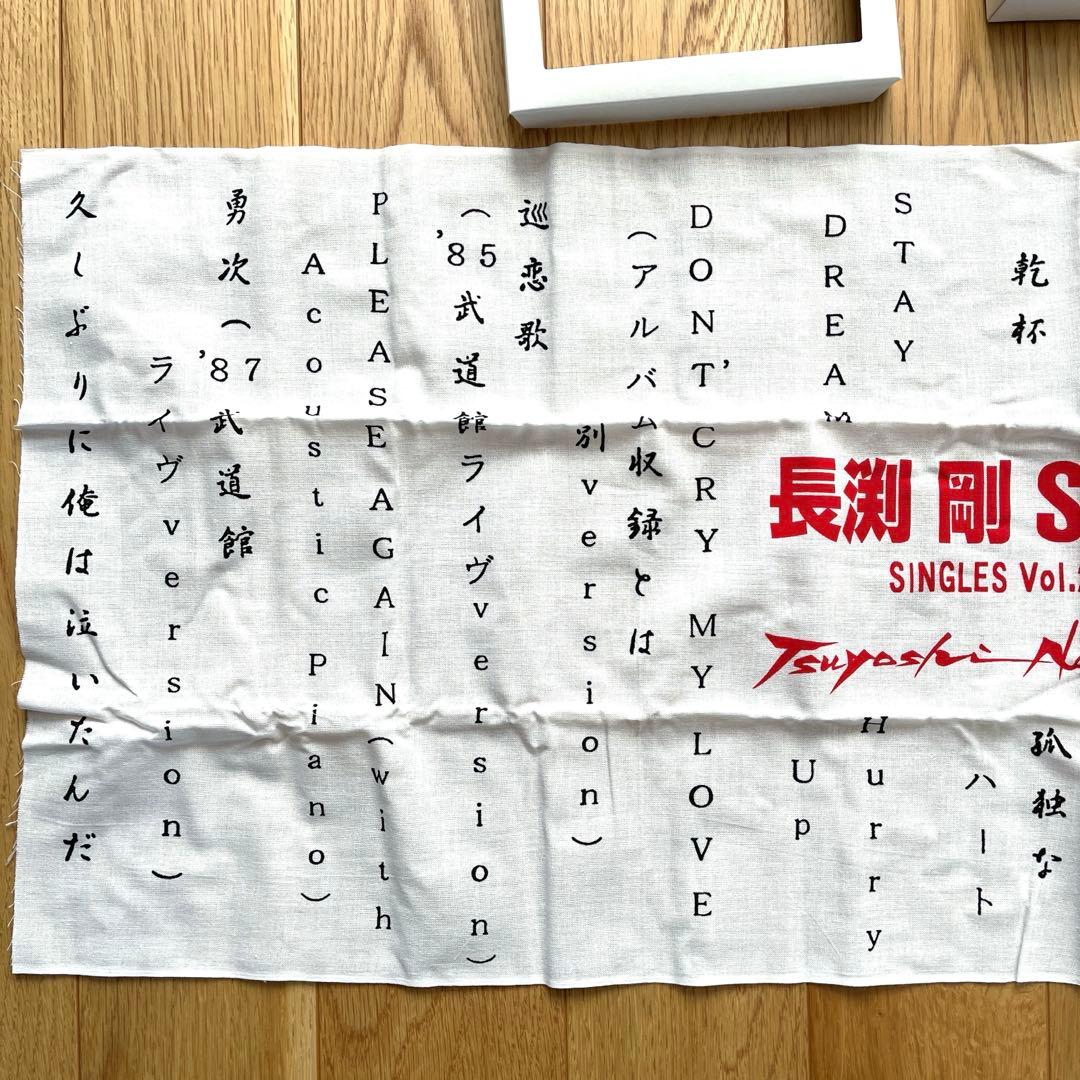 乾杯
孤独な
ハート
STAY
DREA
Hurry
Up
長渕 剛 S
SINGLES Vol.
Tsuyoshi
DONT' CRY MY LOVE
(アルバム収録とは
別version)
巡恋歌
('85武道館ライヴversion)
PLEASE AGAIN(with
Acoustic Piano)
勇次('87武道館
ライヴversion)
久しぶりに俺は泣いたんだ